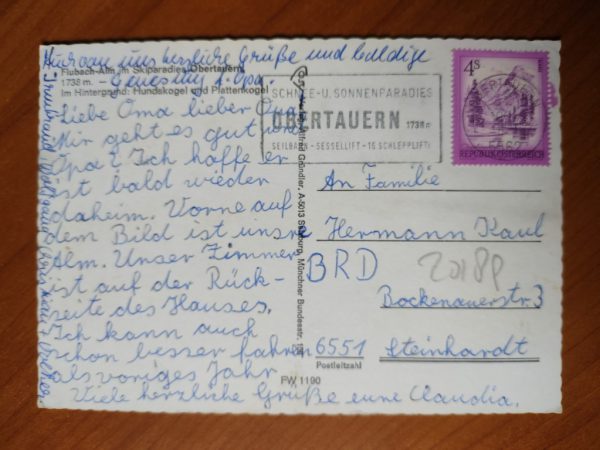 herzliche Grüße und baldige
Genesung f. Opa.
Flubach-Alm im Skiparadies Obertauern
1738 m.
Im Hintergrund: Hundskogel und Plattenkogel
Liebe Oma lieber Opa
Mir geht es gut und
Opa? Ich hoffe er
ist bald wieder
daheim. Vorne auf
dem Bild ist unsre
Alm. Unser Zimmer
ist auf der Rück-
seite des Hauses.
Ich kann auch
schon besser fahren
als voriges Jahr
Viele herzliche Grüße eure Claudia.
Gründler, A-5013 Salzburg, Münchner Bundesstr.
FW 1190
SCHNEE-U. SONNENPARADIES
OBERTAUERN 1738m
SEILBAHN - SESSELLIFT - 16 SCHLEPPLIFTE
4S
REPUBLIK ÖSTERREICH
5562
An Familie
Hermann Kaul
BRD
Bockenauerstr. 3
6551 Steinhardt
Postleitzahl